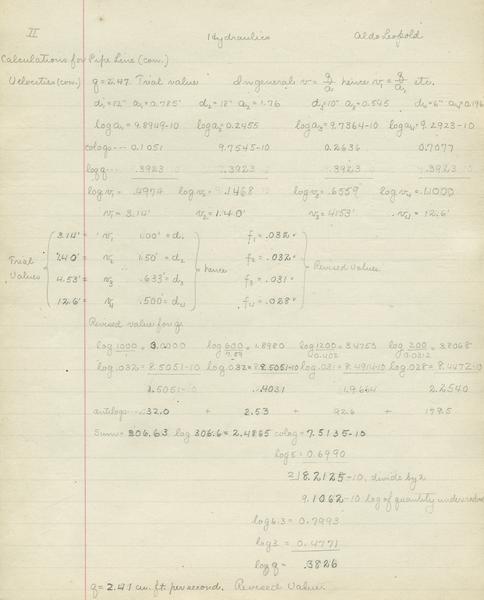 II Hydraulics Aldo Leopold
Calculations for Pipe Line (con.)
Velocities (con.) q = 2.47 Trial value In general v = q/a hence v₁ = q/a₁ etc.
d₁ = 12" a₁ = 0.785' d₂ = 18" a₂ = 1.76 d₃ = 10" a₃ = 0.545 d₄ = 6" a₄ = 0.196
log a₁ = 9.8949-10 log a₂ = 0.2455 log a₃ = 9.7364-10 log a₄ = 9.2923-10
cologs --- 0.1051 9.7545-10 0.2636 0.7077
log q --- .3923 .3923 .3923 .3923
log v₁ = .4974 log v₂ = .1468 log v₃ = .6559 log v₄ =
v₁ = 3.14' v₂ = 1.40' v₃ = 4.53' v₄ = 12.6'
Trial Values = { 3.14' = v₁ 1.00' = d₁ } hence { f₁ = .032 } = Revised Values
1.40' = v₂ 1.50' = d₂ f₂ = .032
4.53' = v₃ .633' = d₃ f₃ = .031
12.6' = v₄ .500' = d₄ f₄ = .028
Revised value for q:
log 1000 = 3.0000 log 600/7.59 = 1.8980 log 1200/0.402 = 3.4753 log 200/0.0312 = 3.8068
log .032 = 8.5051-10 log .032 = 8.5051-10 log .031 = 8.4914-10 log .028 = 8.4472-10
1.5051 .4031 1.9664 2.2540
antilogs --- 32.0 + 2.53 + 92.6 + 179.5
Sum = 306.63 log 306.6 = 2.4865 colog = 7.5135-10
log 5 = 0.6990
2)18.2125-10, divide by 2
9.1062-10 log of quantity under
log 6.3 = 0.7993
log 3 = 0.4771
log q = .3826
q = 2.41 cu. ft. per second. Revised Value.